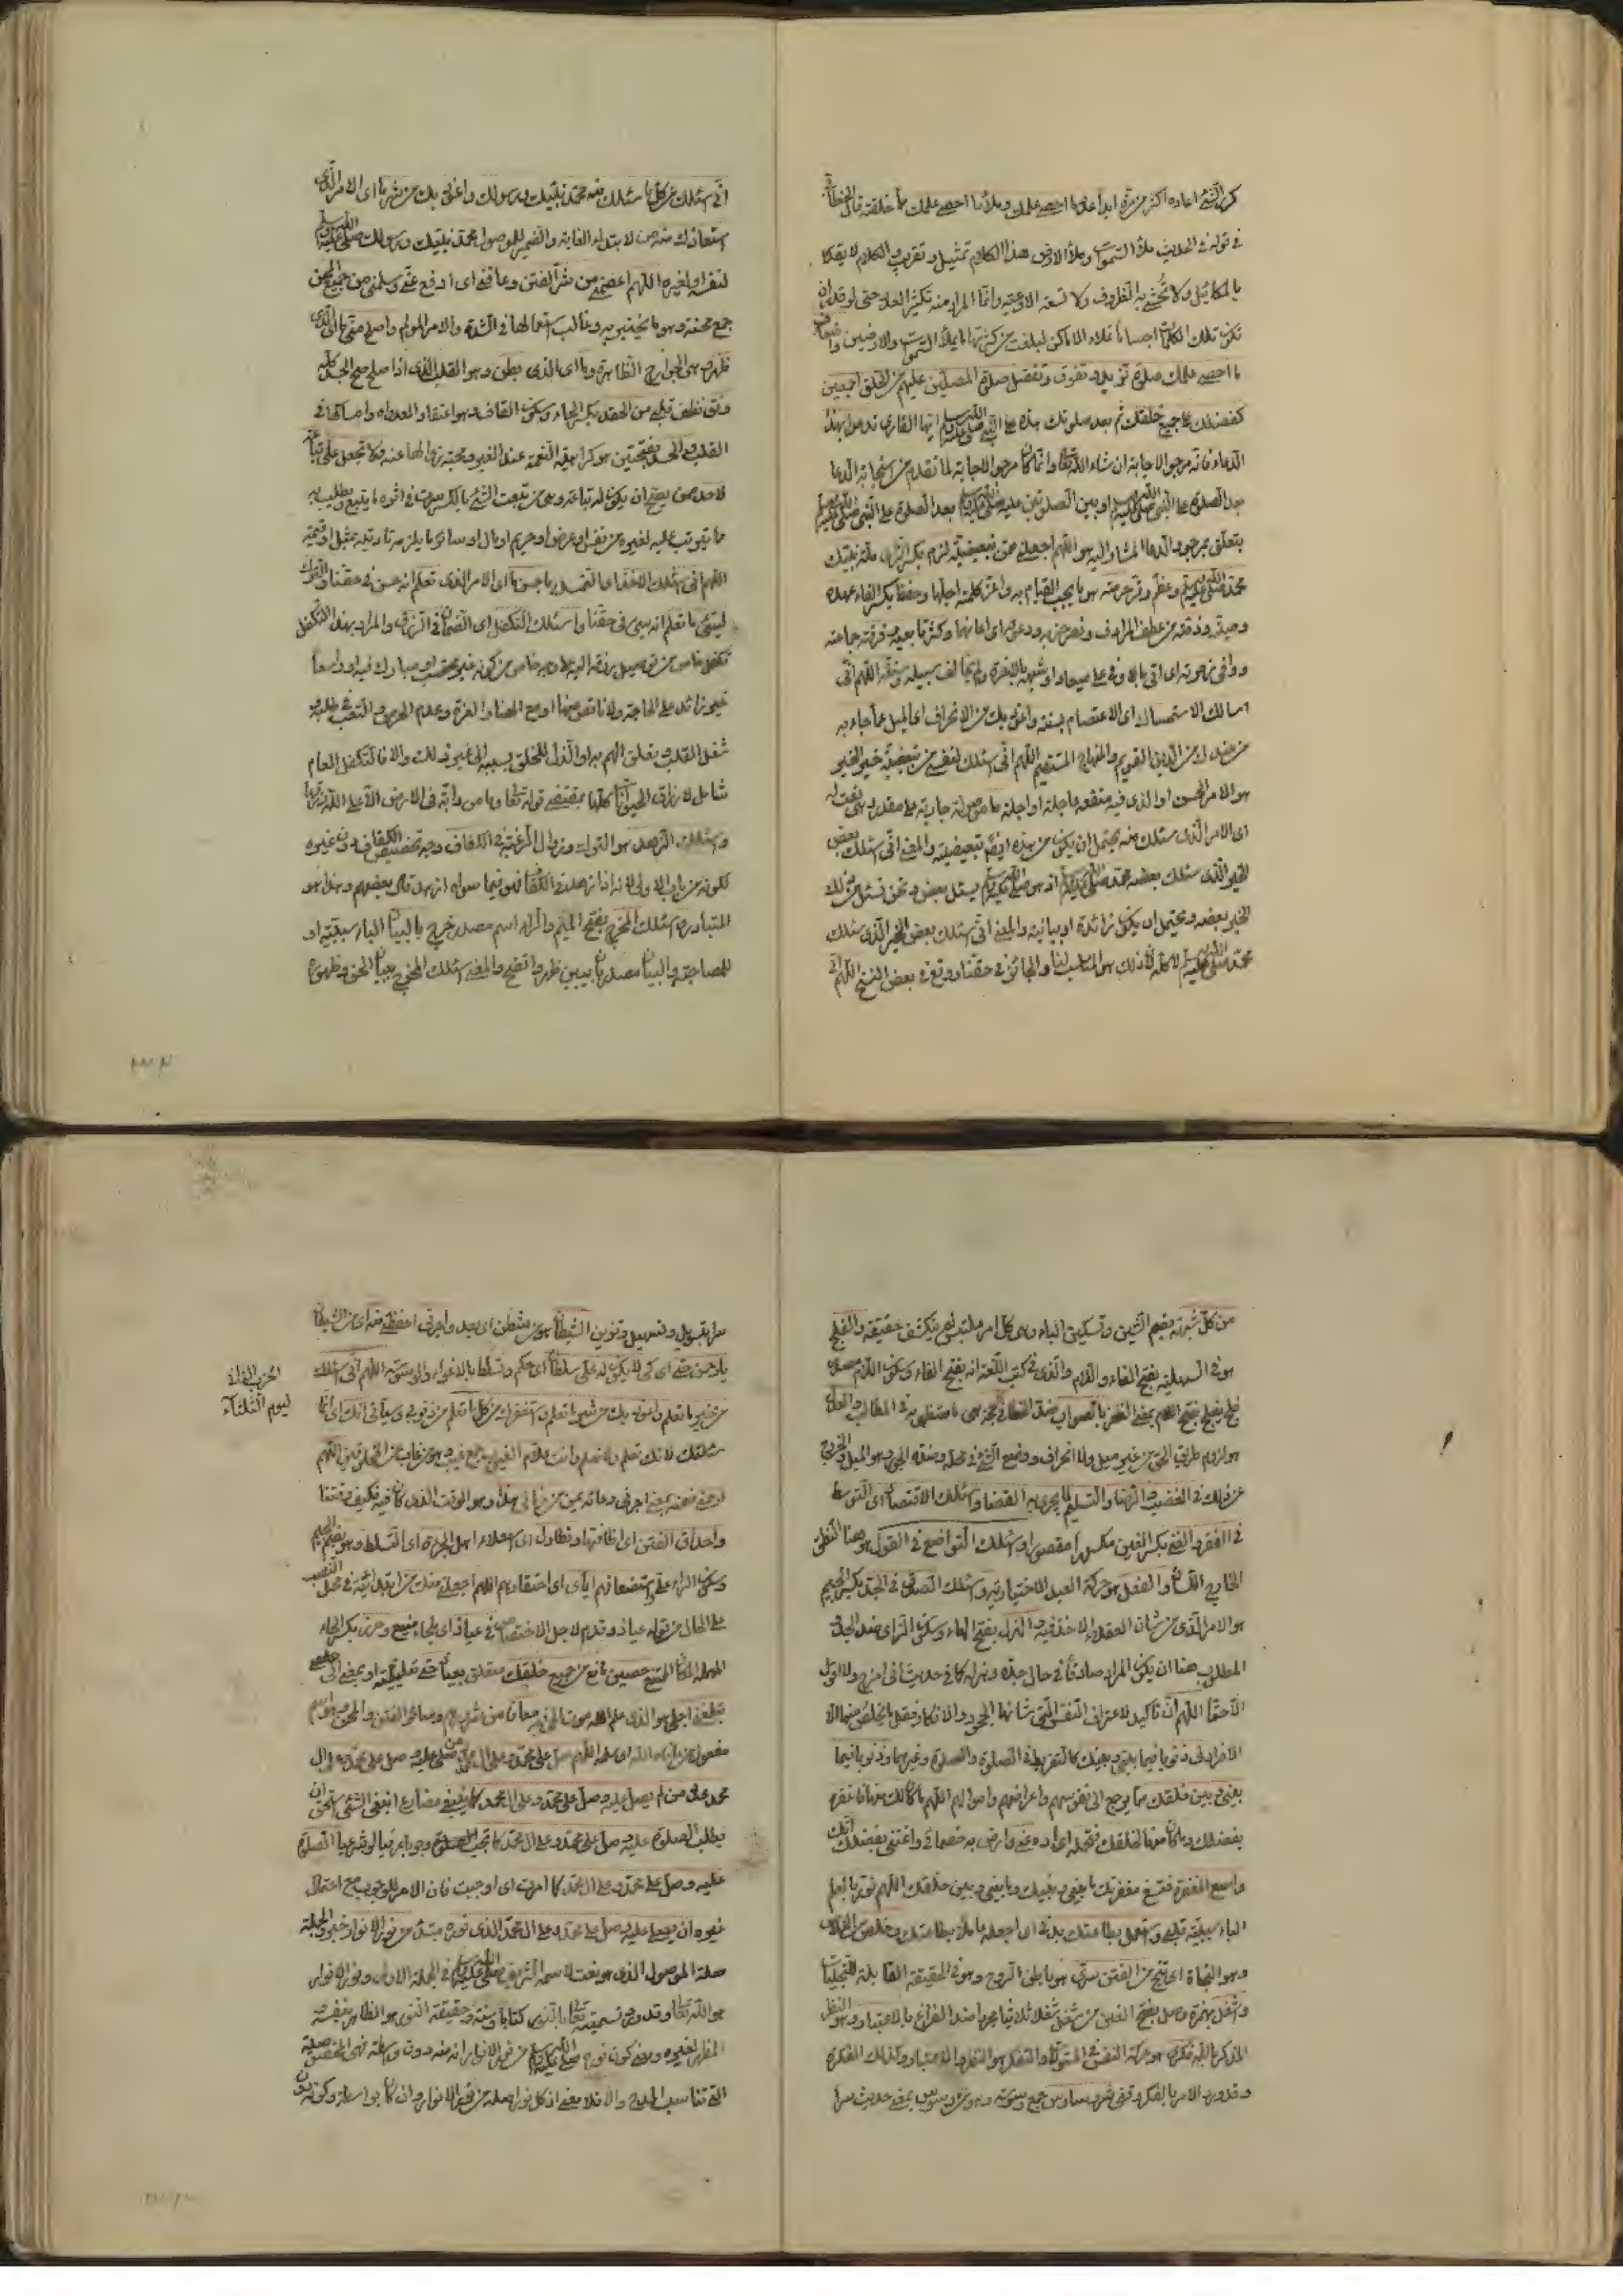 كرر الشئ اعاده اكثر من مرة ابدا عدد ما احصى علمك وملأ ما احصى علمك مما خلقته قال الخطابي
في قوله في الحديث ملأ السموات وملأ الارض هذا الكلام تمثيل وتقريب والكلام لا يقدر
بالمكائيل ولا تحشى به الظروف ولا تسعه الاوعية وانما المراد منه تكثير العدد حتى لو قدر ان
تكون تلك الكلمات اجساما تملاء الاماكن لبلغت من كثرتها ما يملأ السموات والارضين واضعاف
ما احصى علمك صلوة تزيد وتفوق وتفضل صلوة المصلين عليهم من الخلق اجمعين
كفضلك على جميع خلقك ثم بعد صلوتك هذه على النبي صلى الله عليه وسلم ايها القارى تدعو بهذا
الدعاء فانه مرجو الاجابة ان شاء الله تعالى وانما كان مرجو الاجابة لما تقدم من استجابة الدعا
بعد الصلوة على النبي صلى الله عليه وسلم او بين الصلوتين عليه صلى الله عليه وسلم بعد الصلوة على النبي صلى الله عليه وسلم
يتعلق بمرجو والدعا المشار اليه هو اللهم اجعلني ممن تبعيضية لزم بكسر الزاى ملة نبيك
محمد صلى الله عليه وسلم وعظم وقر حرمته هو ما يجب القيام به واعز كلمته اجلها وحفظ بكسر الفاء عهده
وصيته وذمته من عطف المرادف ونصر حزبه ودعوته اى اعانها وكثر تابعيه وفرقته جماعته
ووافى زمرته اى اتى بالوفى على ميعاد او شبهه بالاخرة ولم يخالف سبيله وسنته اللهم انى
اسالك الاستمساك اى الاعتصام بسنته واعوذ بك من الانحراف اى الميل عما جاء به
من ضد او من الدين القويم والمنهاج المستقيم اللهم انى اسئلك لنفسى من تبعيضية خير الخير
هو الامر الحسن او الذى فيه منفعه عاجلة او اجلة ما موصولة جارية على مقدر هى نعت له
اى الامر الذى سئلك منه يحتمل ان يكون من هذه ايضا تبعيضية والمعنى انى اسئلك بعض
الخير الذى سئلك بعضه محمد صلى الله عليه وسلم اذ هو صلى الله عليه وسلم يسئل بعض ونحن نسئل من ذلك
الخير بعضه ويحتمل ان يكون زائدة او بيانية والمعنى انى اسئلك بعض الخير الذى سئلك
محمد صلى الله عليه وسلم لا كله لان ذلك هو المناسب لنا والجائز في حقنا ووقع في بعض النسخ اللهم انى
انى اسئلك من كل ما سئلك منه محمد نبيك ورسولك واعوذ بك من شر ما اى الامر الذى
استعاذك منه من لابتداء الغاية والضمير للموصول محمد نبيك ورسولك صلى الله عليه وسلم
لنفسه او لغيره اللهم اعصمنى من شر الفتن وعافنى اى ادفع عنى وسلمنى من جميع المحن
جمع محنة وهو ما يختبر به وغالب استعمالها في الشدة والامر المولم واصلح منى ما اى الذى
ظهر وهى الجوارح الظاهرة وما اى الذى بطن وهو القلب الذى اذا صلح صلح الجسد كله
ونق نظف قلبى من الحقد بكسر الحاء وسكون القاف هو اعتقاد العداوه وامساكها في
القلب والحسد بفتحتين هو كراهية النعمة عند الغير ومحبة زوالها عنه ولا تجعل على تباعة
لاحد ممن يصح ان يكون له تباعة وهى من تبعت الشئ بالكسر سرت في اثره ما يتبع ويطلب به
مما يترتب عليه لغيره من نفس او عرض او حريم او مال او سائر ما يلزمه تأديته بمثل او قيمة
اللهم انى اسئلك الاخذ اى التحصيل باحسن ما اى الامر الذى تعلم انه حسن في حقنا والترك
لسيئ ما تعلم انه سيئ في حقنا واسئلك التكفل اى الضمان في الرزق والمراد بهذا التكفل
تكفل خاص من توصيل رزقه اليه على وجه خاص من كونه غير محتسب او مبارك فيه او واسعا
غير زائد على الحاجة ولا ناقص عنها او مع الهنا والعزة وعدم الحرص والتعب في طلبه و
شغل القلب وتعلق الهم به والذل للخلق بسببه الى غير ذلك والا فالتكفل العام
شامل لارزاق الحيوانات كلها بمقتضى قوله تعالى وما من دابة في الارض الا على الله رزقها
واسئلك الزهد هو الترك وزوال الرغبة في الكفاف وجه تخصيص الكفاف دون غيره
لكونه من باب الاولى لانه اذا زهد في الكفاف فهو فيما سواه ازهد قال بعضهم وهذا هو
المتبادر واسئلك المخرج بفتح الميم والراء اسم مصدر خرج بالبيان الباء سببية او
للمصاحبة والبيان مصدر بان يبين ظهر واتضح والمعنى اسئلك المخرج ببيان الحق وظهوره
من كل شبهة بضم الشين وتسكين الباء وهى كل امر ملتبس لم ينكشف حقيقته والفلج
هو في السهلية بفتح الفاء واللام والذى في كتب اللغة انه بفتح الفاء وسكون اللام مصدر
فلج يفلج بفتح اللام بمعنى الظفر بالصواب ضد الخطا في كل حجة هى ما استظهر به في المطالب والعدل
هو لزوم طريق الحق من غير ميل ولا انحراف ووضع الشئ في محله وضده الجور وهو الميل والخروج
عن ذلك في الغضب والرضا والتسليم لما يجرى به القضا واسئلك الاقتصاد اى التوسط
في الفقر والغنى بكسر الغين مكسورا مقصورا واسئلك التواضع في القول هو هنا النطق
الخارج اللسان والفعل هو حركة العبد الاختيارية واسئلك الصدق في الجد بكسر الجيم
هو الامر الذى من شان العقلاء الاخذ فيه والهزل بفتح الهاء وسكون الزاى ضد الجد و
المطلوب هنا ان يكون المراد صادقا في حال جده وهزله كما في حديث انى امزح ولا اقول
الا حقا اللهم ان تاكيد لاعتراف النفس التى شانها الجحود والانكار فقل ما تخلص منها الا
الافراد لى ذنوبا فيما بينى وبينك كالتفريط في الصلوة والصلوة وغيرهما وذنوبا فيما
بينى وبين خلقك مما يرجع الى نفوسهم واعراضهم واموالهم اللهم ما كان لك منها فاغفره
بفضلك وما كان منها لخلقك فتحمله اى اده عنى وارض به خصمائى واغننى بفضلك انك
واسع المغفرة فتسع مغفرتك ما بينى وبينك وما بينى وبين خلقك اللهم نور بالعلم
الباء سببية قلبى واستعمل بطاعتك بدنى اى اجعله عاملا بطاعتك وخلص من الخلاص
وهو النجاة اى نج من الفتن سرى هو باطن الروح وهو في الحقيقة القابلة للتجليات
واشغل بهمزة وصل بفتح الغين من شغل شغلا ثلاثيا مجردا ضد الفراغ بالاعتبار وهو النظر
المذكر بالله فكرى هو حركة النفس في المتولد والتفكر هو النظر والاعتبار وكذلك الفكرة
وقد ورد الامر بالفكر وقنى شر وساوس جمع وسوسة وهو من وسوس بمعنى حديث سرا
سرا بتسويل وتسهيل وتزيين الشيطان هو من شطن اى بعد واجرنى احفظنى منه اى من الشيطان
يا رحمن حتى اى كى لا يكون له على سلطان اى حكم وتسلط بالاغواء والوسوسة اللهم انى اسئلك
الحزب الثانى
ليوم الثلثاء
من خير ما تعلم واعوذ بك من شر ما تعلم واستغفرك من كل ما تعلم من ذنوبى وسيأتى انك اى انما
سئلتك لانك تعلم ولا نعلم وانت علام الغيوب جمع غيب هو ما غاب عن المخلوقين اللهم
ارحمنى ضمنه بمعنى اجرنى وعداه بمن من زمانى هذا وهو الوقت الذى كان فيه فكيف وقتنا
واحداق الفتن اى اطافتها وتطاول اى استعلاء اهل الجرأة اى التسلط وهو بضم الجيم
وسكون الراء على واستضعافهم اياى اى احتقارهم اللهم اجعلنى منك من ابتدائية في محل النصب
على الحال من قوله عياذ وقدم لاجل الاختصاص في عياذ اى ملجاء منيع وحرز بكسر الحاء
المهملة المكان المنيع حصين مانع من جميع خلقك متعلق بعياذ حتى تعليلية او بمعنى الى
تبلغنى اجلى هو الذى علم الله موت الحى فيه معافا من شرورهم ومعافا الفتن والمحن
مفعول من عافاه الله اى سلمه اللهم صل على محمد وعلى ال محمد من صلى عليه وصل على محمد وعلى ال
محمد عدد من لم يصل عليه وصل على محمد وعلى ال محمد كما ينبغى مضارع انبغى الشئ استحق ان
يطلب الصلوة عليه وصل على محمد وعلى ال محمد كما تجب الصلوة وجوبا عرفيا او شرعيا الصلوة
عليه وصل على محمد وعلى ال محمد كما امرت اى اوجبت فان الامر للوجوب مع احتمال
غيره ان يصلى عليه وصل على محمد وعلى ال محمد الذى نوره مبتدأ من نور الانوار خبره والجملة
صلة الموصول الذى هو نعت لاسمه الشريف صلى الله عليه وسلم في الجملة الاولى ونور الانوار
هو الله تعالى وقد ورد تسميته تعالى بالنور كتابا وسنة وحقيقة النور هو الظاهر بنفسه
المظهر لغيره ومعنى كون نوره صلى الله عليه وسلم من نور الانوار انه منه دون واسطة فهى المحقق صلية
التى تناسب المدح والا فلا معنى اذ كل نور اصله من نور الانوار وان كان بواسطة وكونه بدون